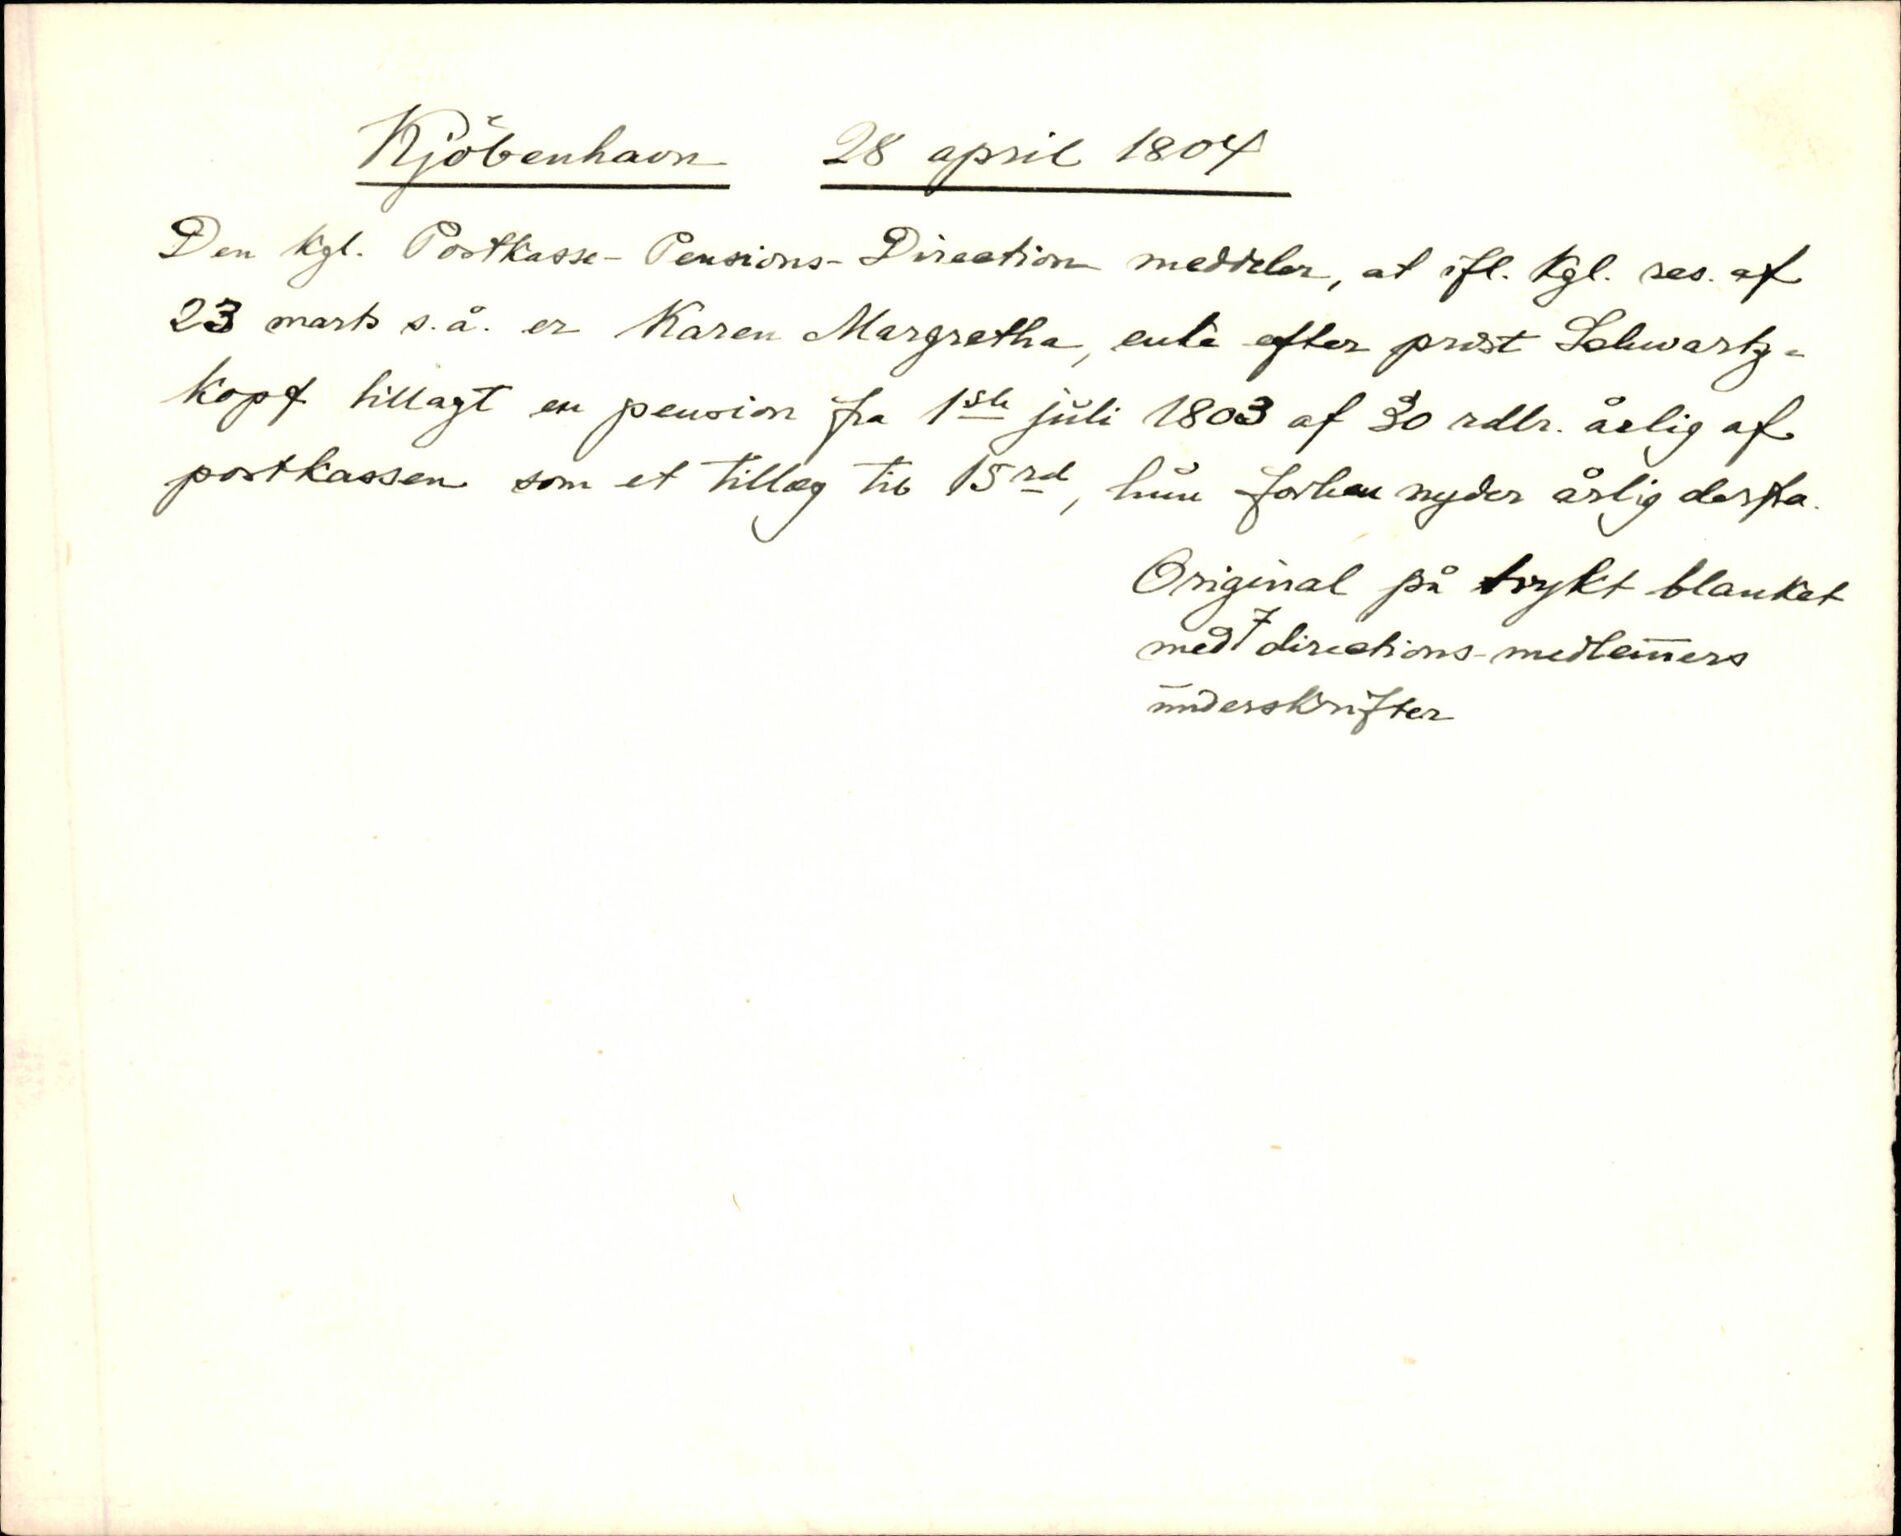 Kjöbenhavn 28 april 1804
Den kgl. Postkasse-Pensions-Direction meddeler, at ifl. kgl. res. af
23 marts s.å. er Karen Margretha, enke efter prost Schwartz-
kopf tillagt en pension fra 1ste juli 1803 af 30 rdlr. årlig af
postkassen som et tillæg til 15 rd, hun forhen nyder årlig derfra.
Original på trykt blanket
med 7 directions-medlem̅ers
underskrifter